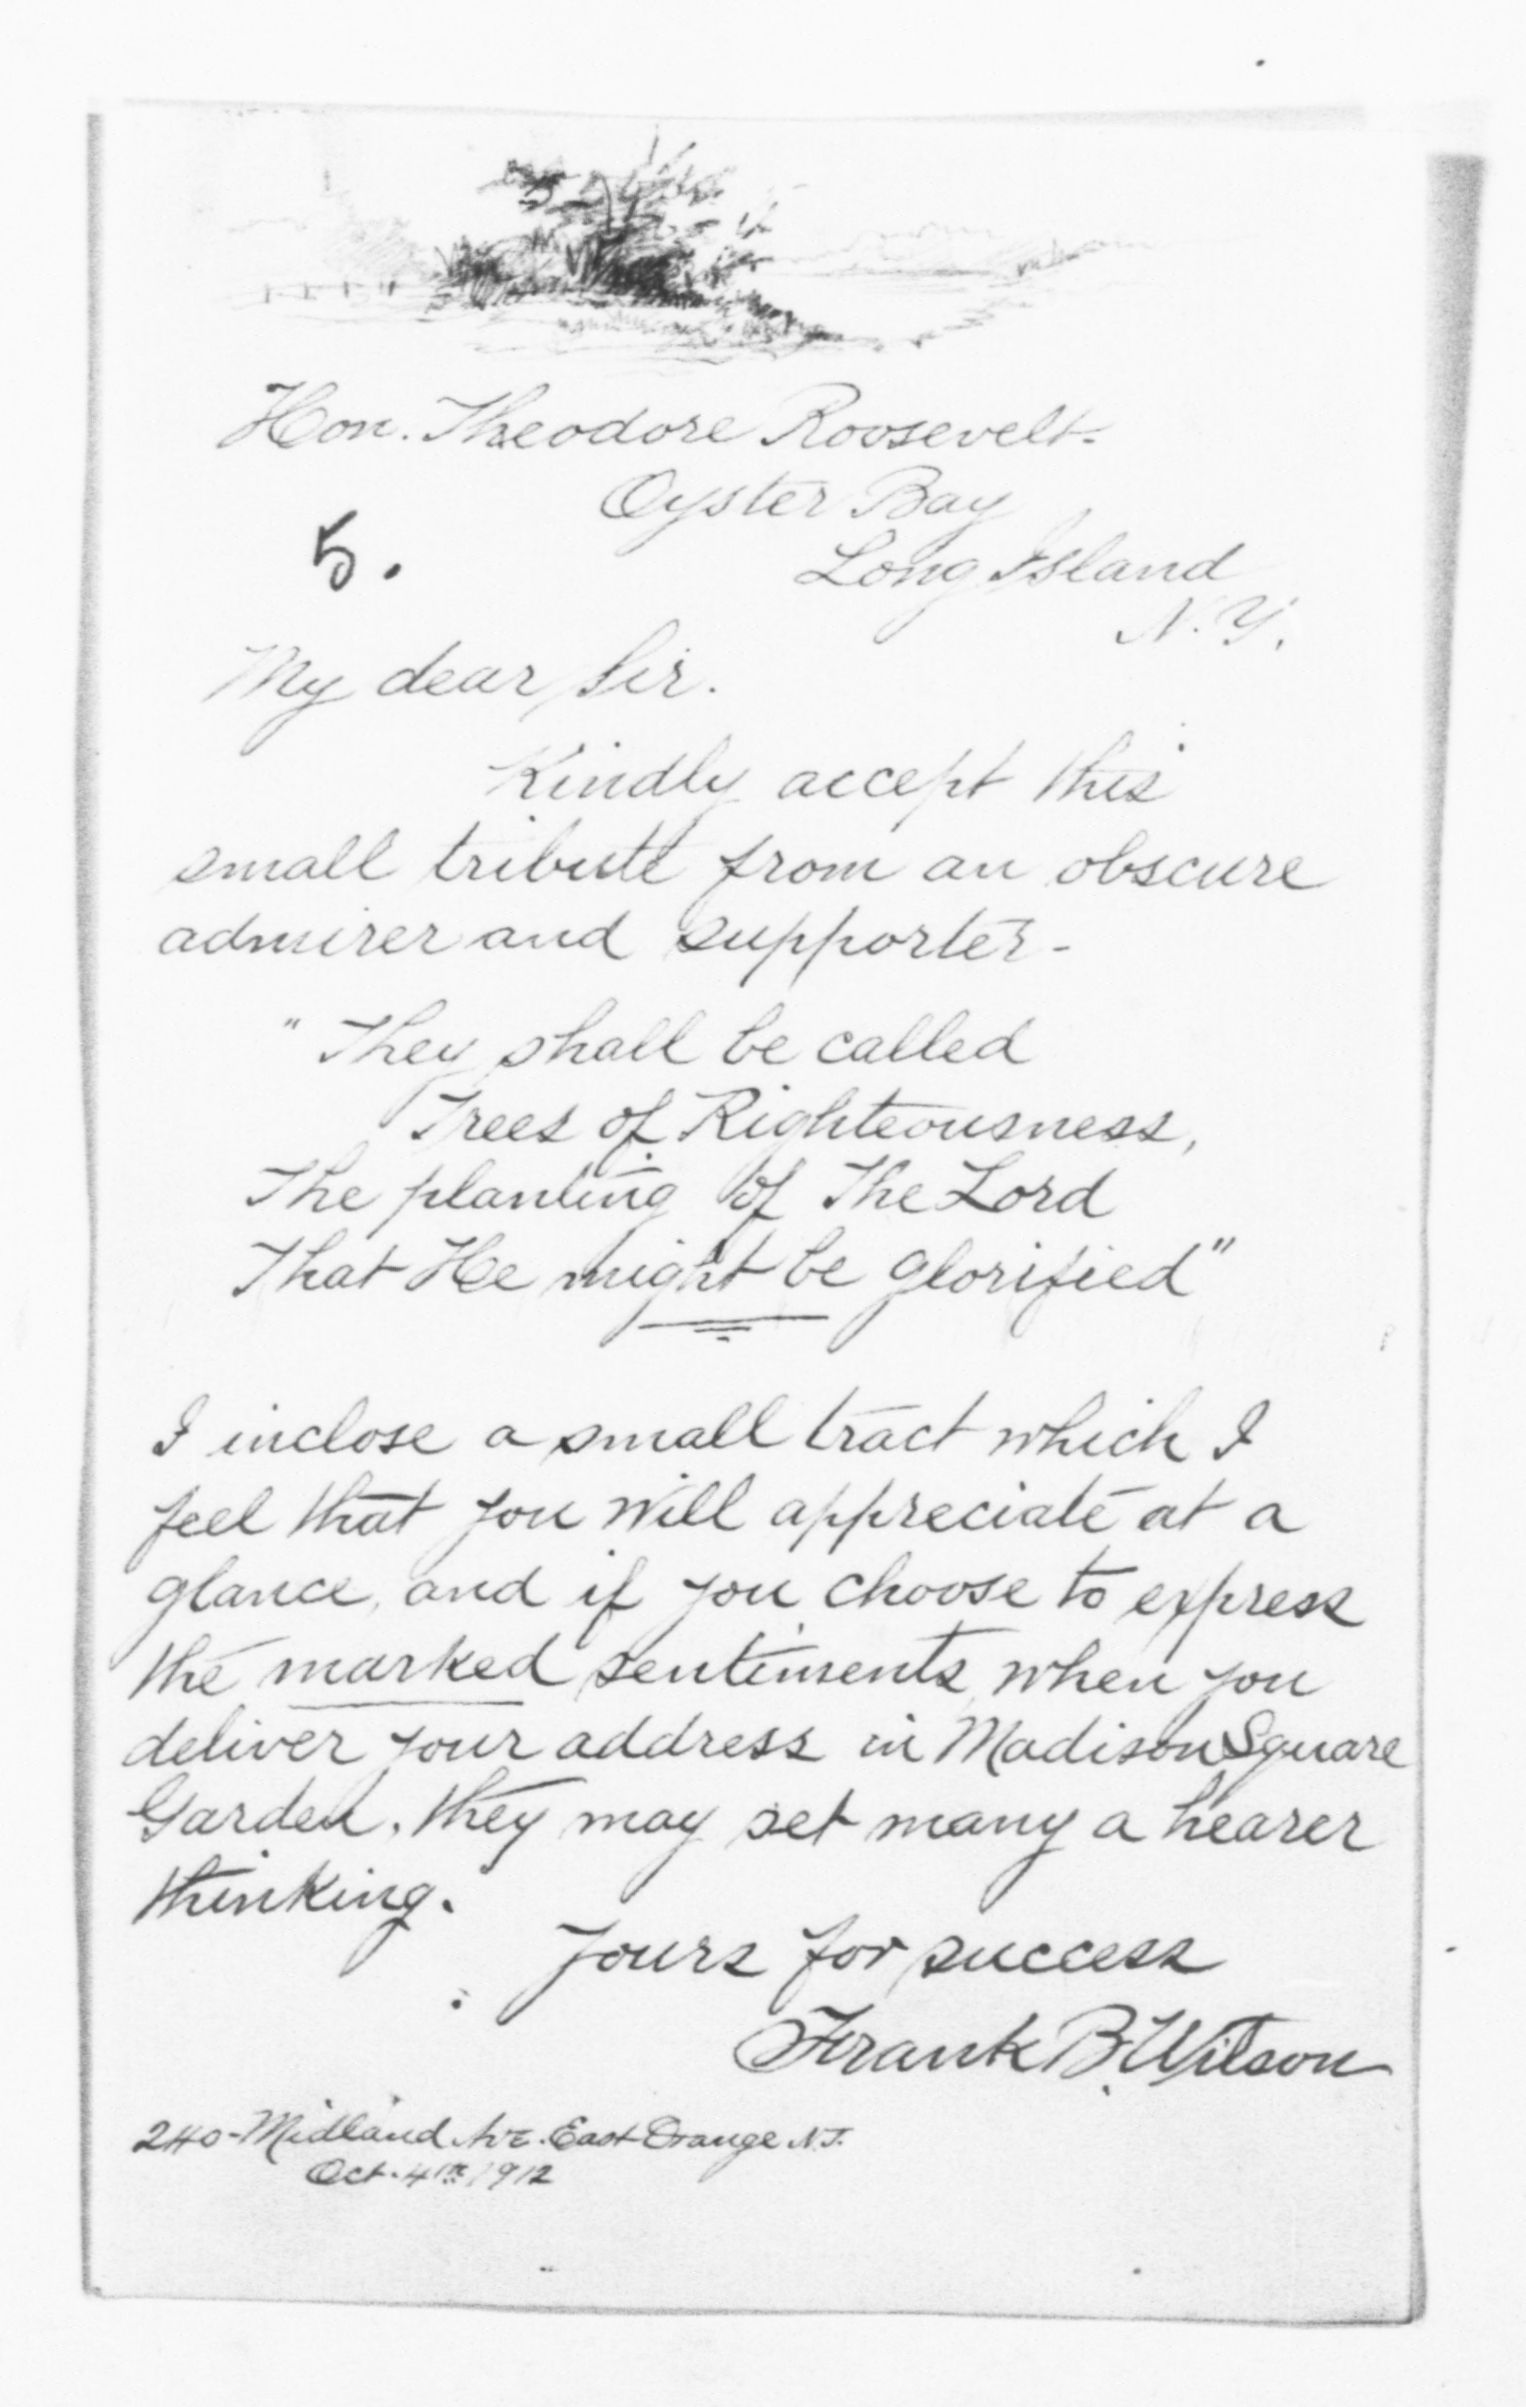 Hon. Theodore Roosevelt-
Oyster Bay
5.
Long Island
N.Y.
My dear Sir.
Kindly accept this
small tribute from an obscure
admirer and supporter-
"They shall be called
Trees of Righteousness,
The planting of The Lord
That He might be glorified"
I inclose a small tract which I
feel that you will appreciate at a
glance, and if you choose to express
the marked sentiments when you
deliver your address in Madison Square
Garden, they may set many a hearer
thinking.
Yours for success
Frank B. Wilson
240-Midland Ave. East Orange N.J.
Oct. 4th 1912